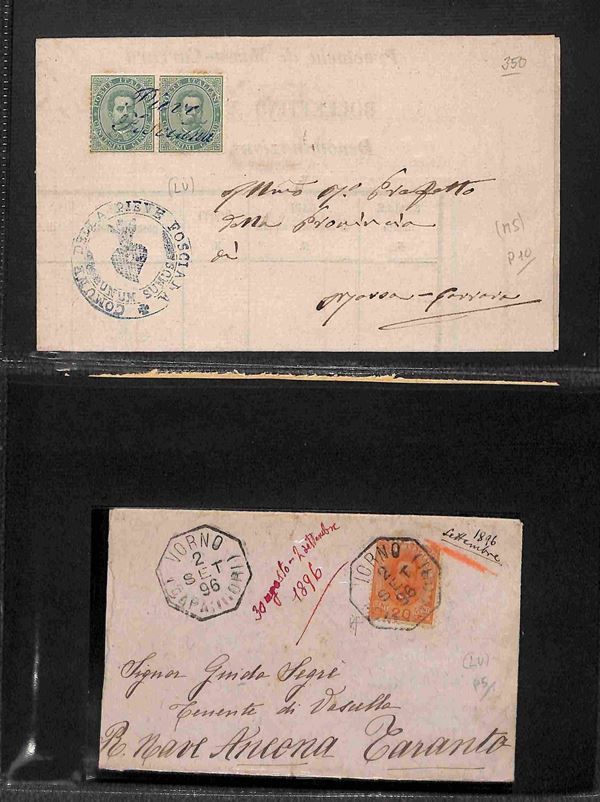 350
POSTE ITALIANE POSTE ITALIANE
Pieve
Fosciana
(LU)
COMUNE DELLA PIEVE FOSCIANA
Prefetto
della Provincia
di
Massa-Carrara
(MS)
P10/
VORNO
2
SET
96
(CAPANNORI)
30 agosto-2 settembre
1896
VORNO
2
SET
96
20
1896
settembre
(LU)
P5/
Signor Guido Segrè
Tenente di Vascello
R. Nave Ancona Taranto